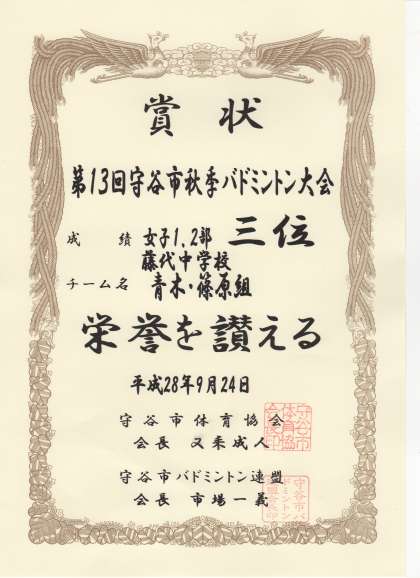 賞状
第13回守谷市秋季バドミントン大会
成績 女子1,2部 三位
藤代中学校
チーム名 青木・篠原組
栄誉を讃える
平成28年9月24日
守谷市体育協会
会長 又耒成人
守谷市バドミントン連盟
会長 市場一義